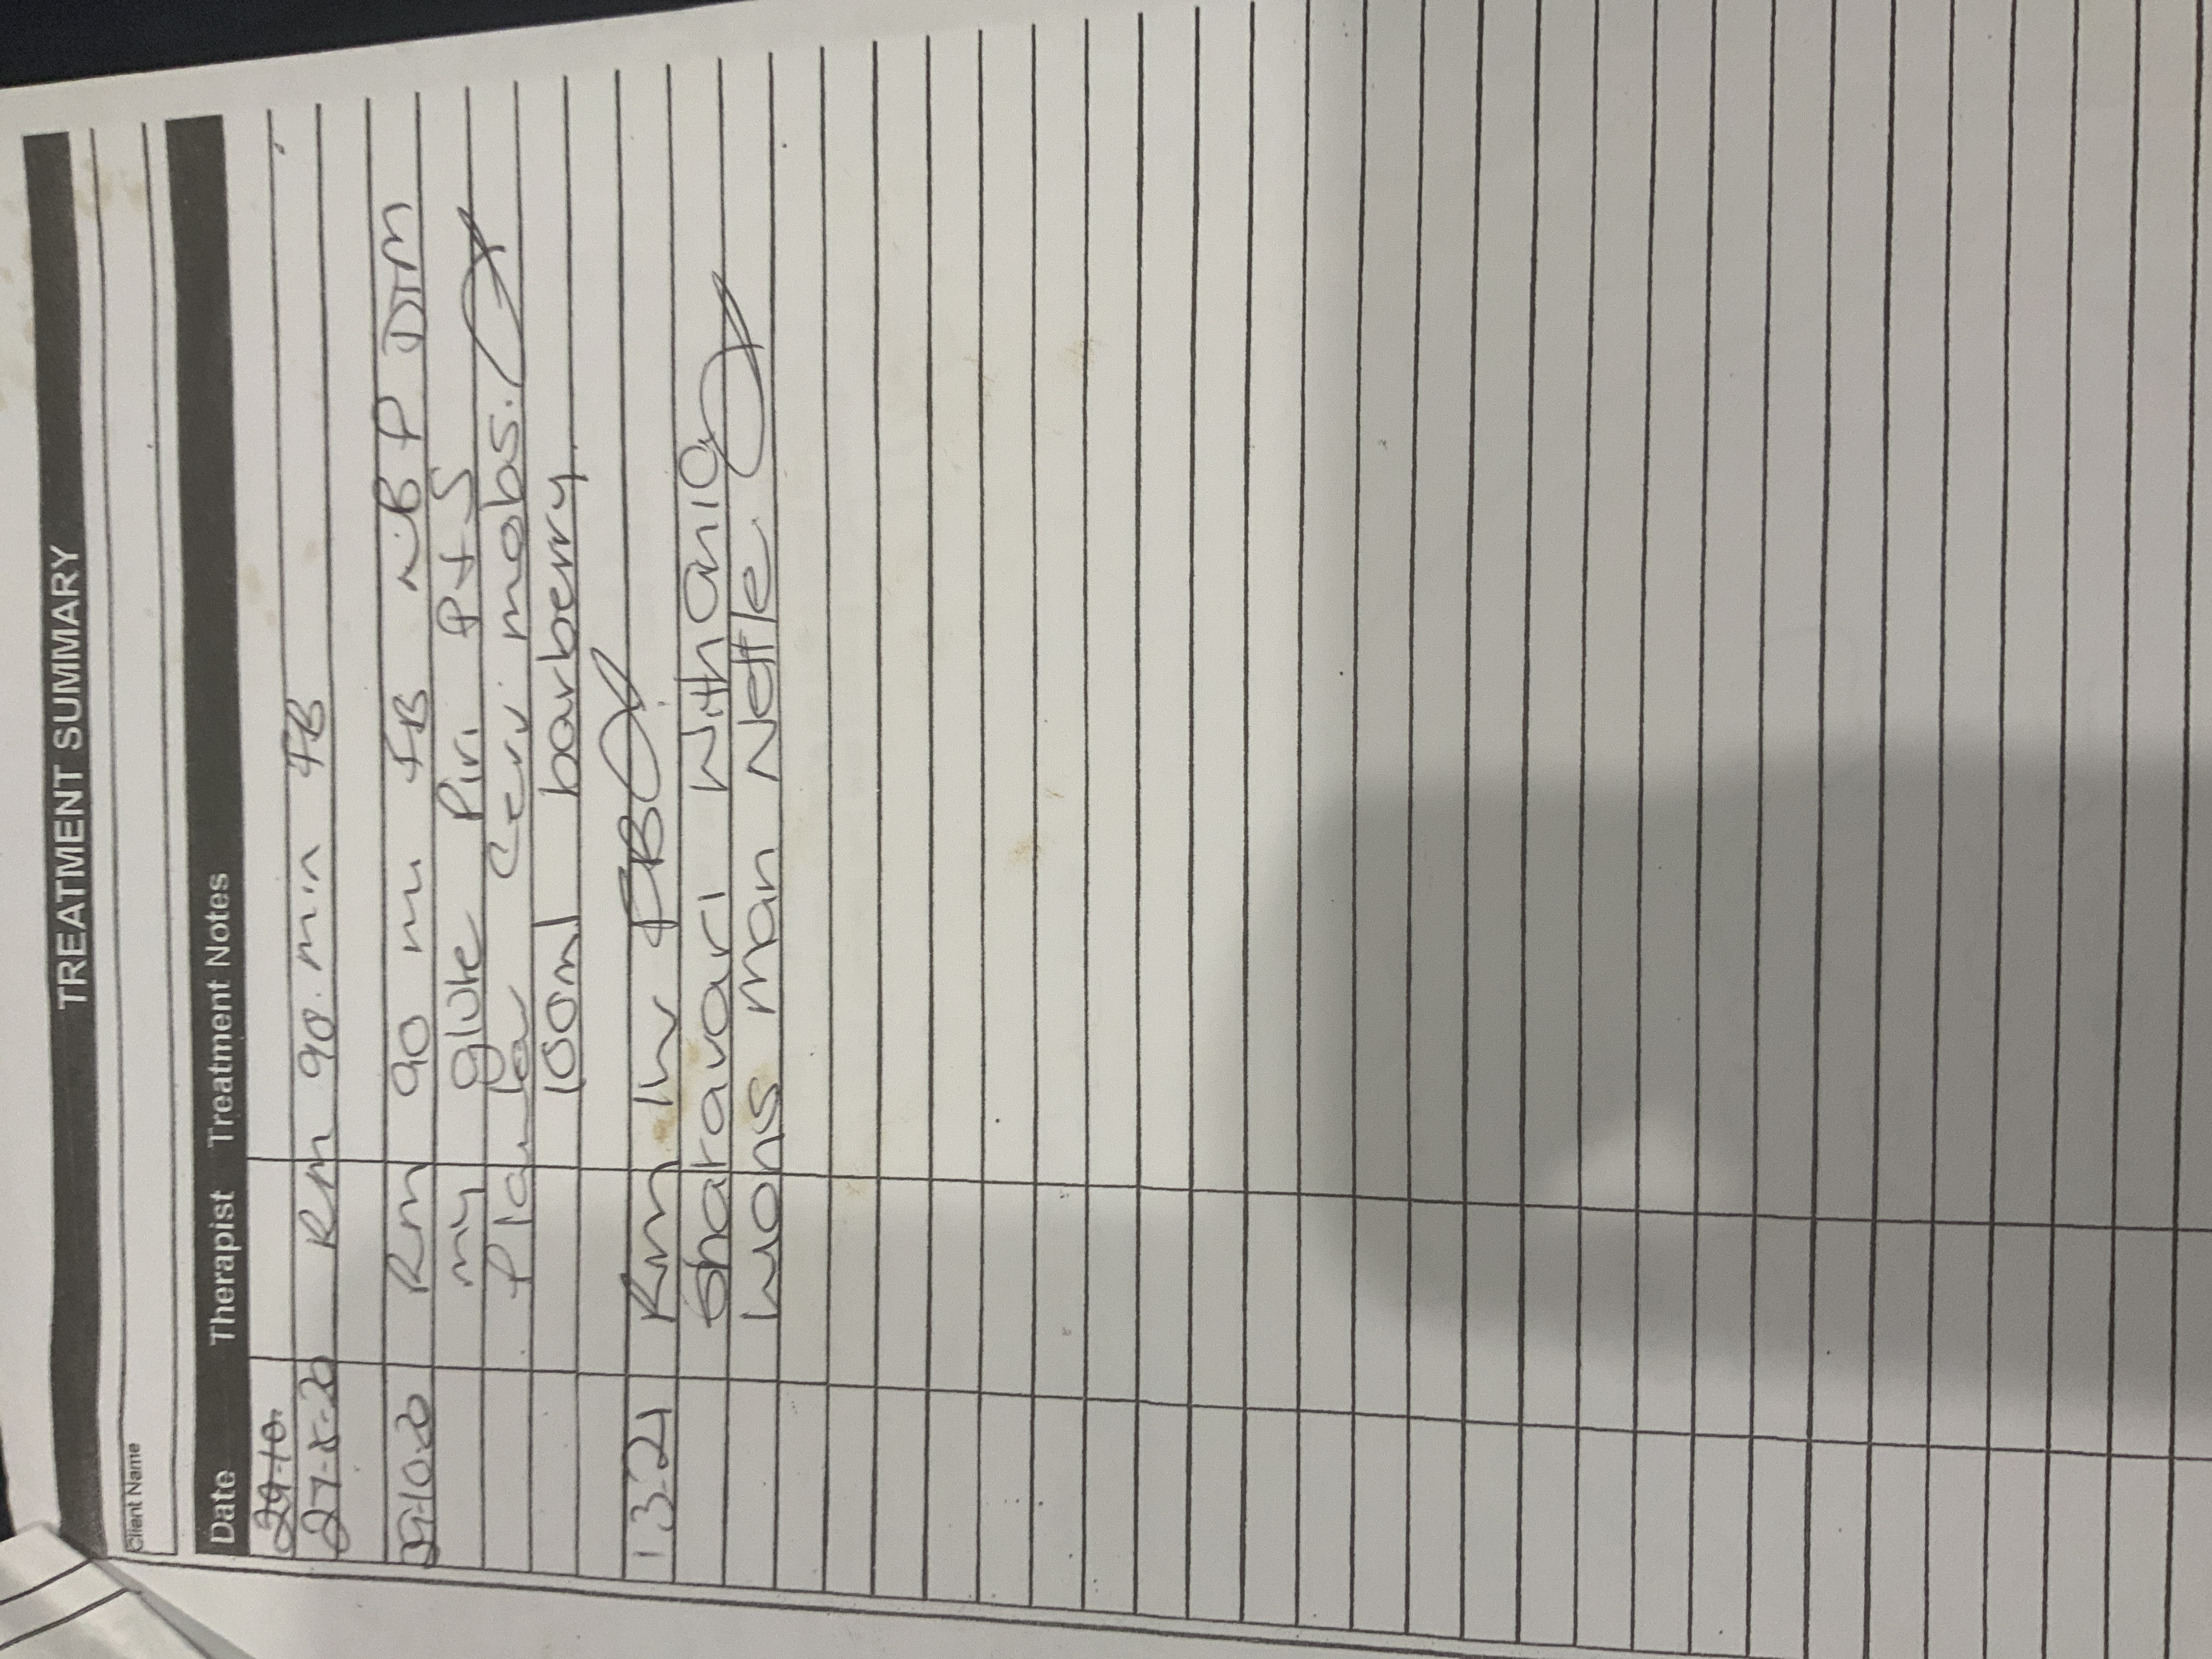 TREATMENT SUMMARY
Client Name
Date Therapist Treatment Notes
29-10.
27-8-20 Rm 90. min FB
29-10-20 Rm 90 mi FB N.B P DTM
my glute Piri P+S
Plan Cerv. mobs.
100ml barberry
1 3-21 Rm 1hr FB
Sharavari Withania
Lions man Nettle